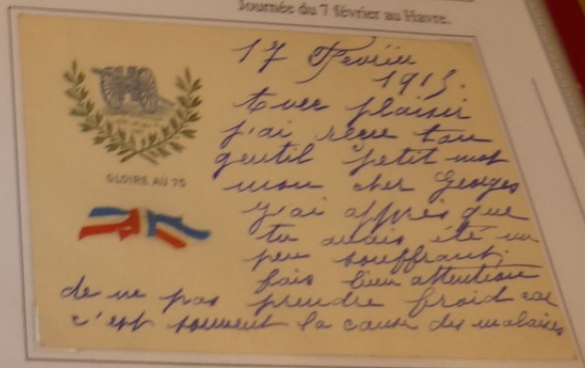 Journée du 7 février au Havre.
17 Fevrier
1915.
Avec plaisir
j'ai reçu ton
gentil petit mot
mon cher Georges
j'ai appris que
tu avais été un
peu souffrant;
fais bien attention
de ne pas prendre froid car
c'est souvent la cause des malaises
GLOIRE AU 75